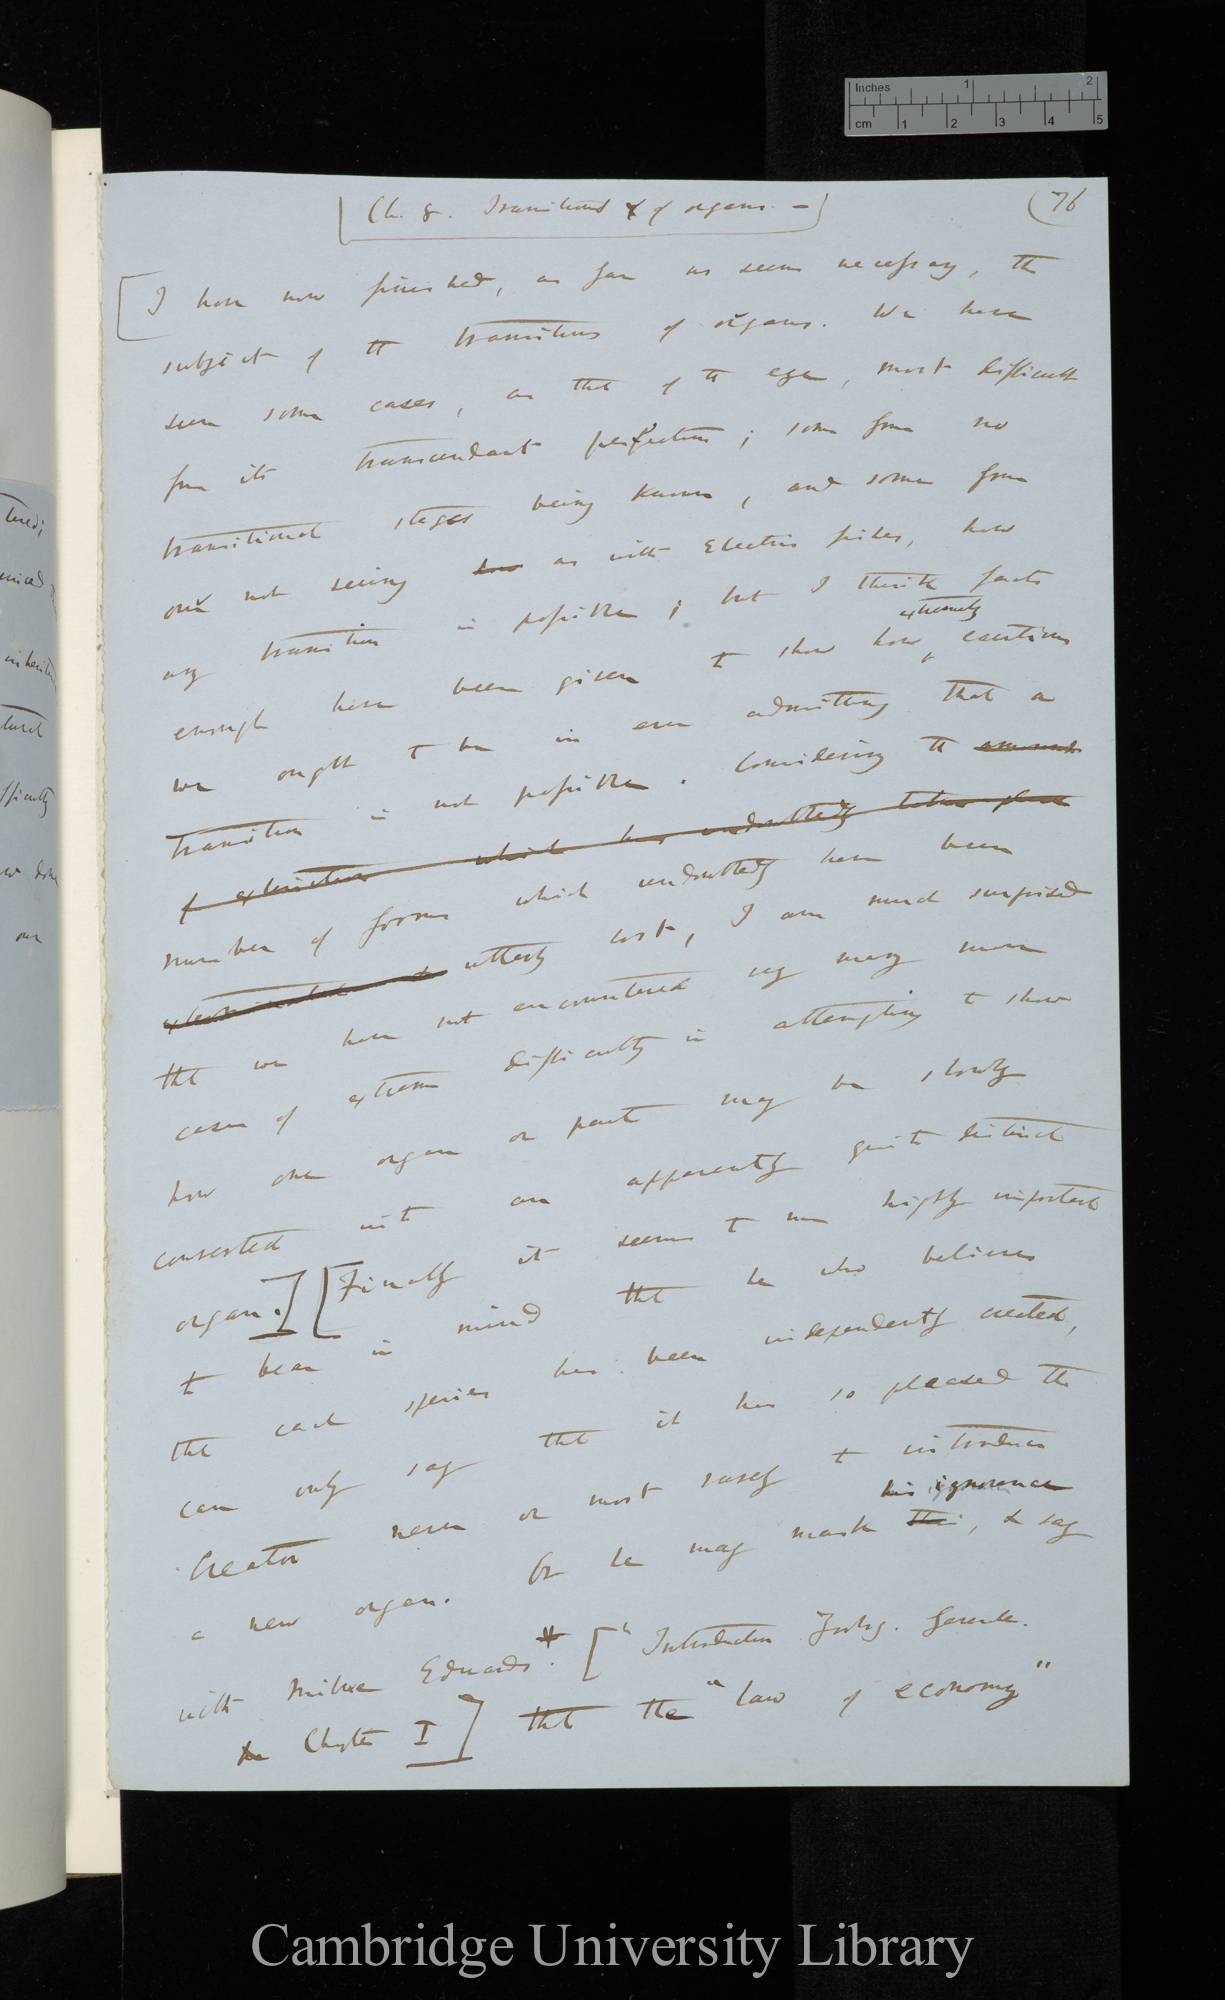 Inches 1 2
cm 1 2 3 4 5
(Ch. 8. Transitions of organs. —)
(76
[I have now finished, as far as seems necessary, the
subject of the transitions of organs. We have
seen some cases, as that of the eye, most difficult
from its transcendant perfection; some from no
transitional stages being known, and some from
our not seeing how as with Electric fishes, how
any transition is possible; but I think facts
extremely
enough have been given to show how cautious
we ought to be in ever admitting that a
transition is not possible. Considering the amount
of extinction which has undoubtedly taken place
number of forms which undoubtedly have been
exterminated & utterly lost, I am much surprised
that we have not encountered very many more
cases of extreme difficulty in attempting to show
how one organ or part may be slowly
converted into an apparently quite distinct
organ.] [Finally it seems to me highly important
to bear in mind that he who believes
that each species has been independently created,
can only say that it has so pleased the
Creator never or most rarely to introduce
his ignorance
a new organ. Or he may mask this, & say
with Milne Edwards. [Introduction Zoolog. Generale.
Chapter I] that the "law of economy"
tered;
ow
Cambridge University Library